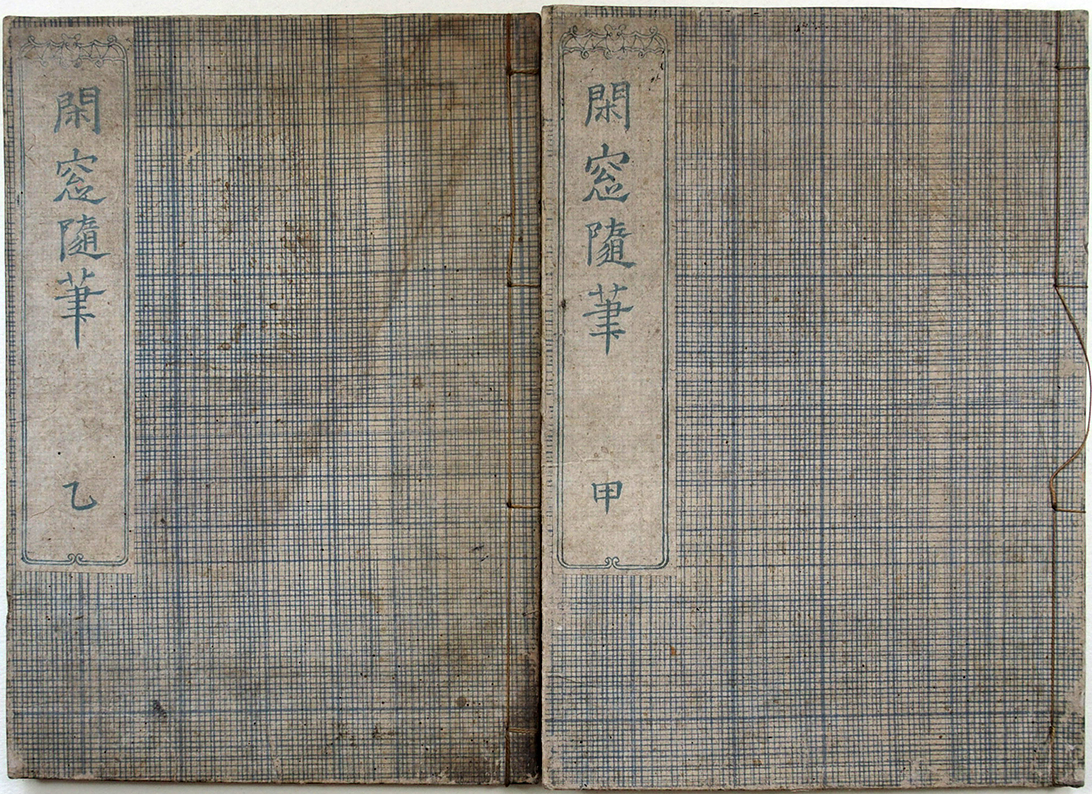 閑窓隨筆 甲
閑窓隨筆 乙